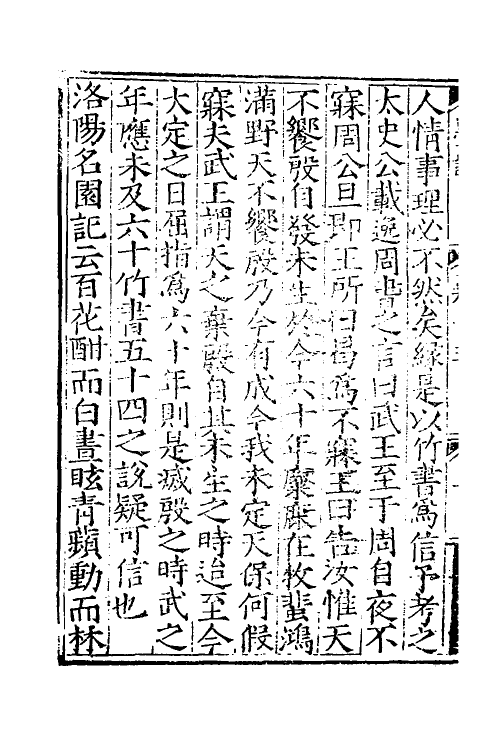 人情事理必不然矣緣是以竹書爲信予考之
太史公載逸周書之言曰武王至于周自夜不
寐周公旦即王所曰曷爲不寐王曰告汝惟天
不饗殷自發未生於今六十年麋鹿在牧蜚鴻
滿野天不饗殷乃今有成今我未定天保何假
寐夫武王謂天之棄殷自其未生之時迨至今
大定之日屈指爲六十年則是滅殷之時武之
年應未及六十竹書五十四之說疑可信也
洛陽名園記云百花酣而白晝眩青蘋動而林